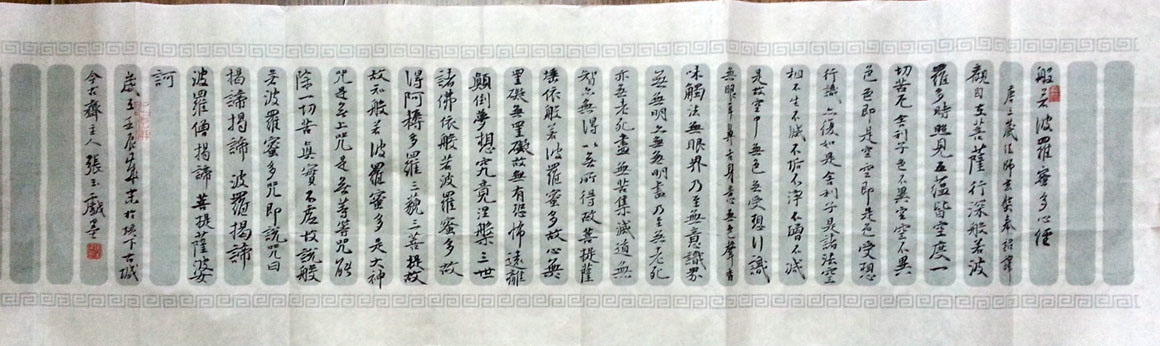 般若波羅蜜多心經
唐三藏法師玄奘奉詔譯
觀自在菩薩行深般若波
羅多時照見五蘊皆空度一
切苦厄舍利子色不異空空不異
色色即是空空即是色受想
行識亦復如是舍利子是諸法空
相不生不滅不垢不淨不增不減
是故空中無色無受想行識
無眼耳鼻舌身意無色聲香
味觸法無眼界乃至無意識界
無無明亦無無明盡乃至無老死
亦無老死盡無苦集滅道無
智亦無得以無所得故菩提薩
埵依般若波羅蜜多故心無
罣礙無罣礙故無有恐怖遠離
顛倒夢想究竟涅槃三世
諸佛依般若波羅蜜多故
得阿耨多羅三藐三菩提故
故知般若波羅蜜多是大神
咒是無上咒是無等等咒能
除一切苦真實不虛故說般
若波羅蜜多咒即說咒曰
揭諦揭諦 波羅揭諦
波羅僧揭諦 菩提薩婆
訶
歲至壬辰年末於下古城
今古齋主人張玉戲墨